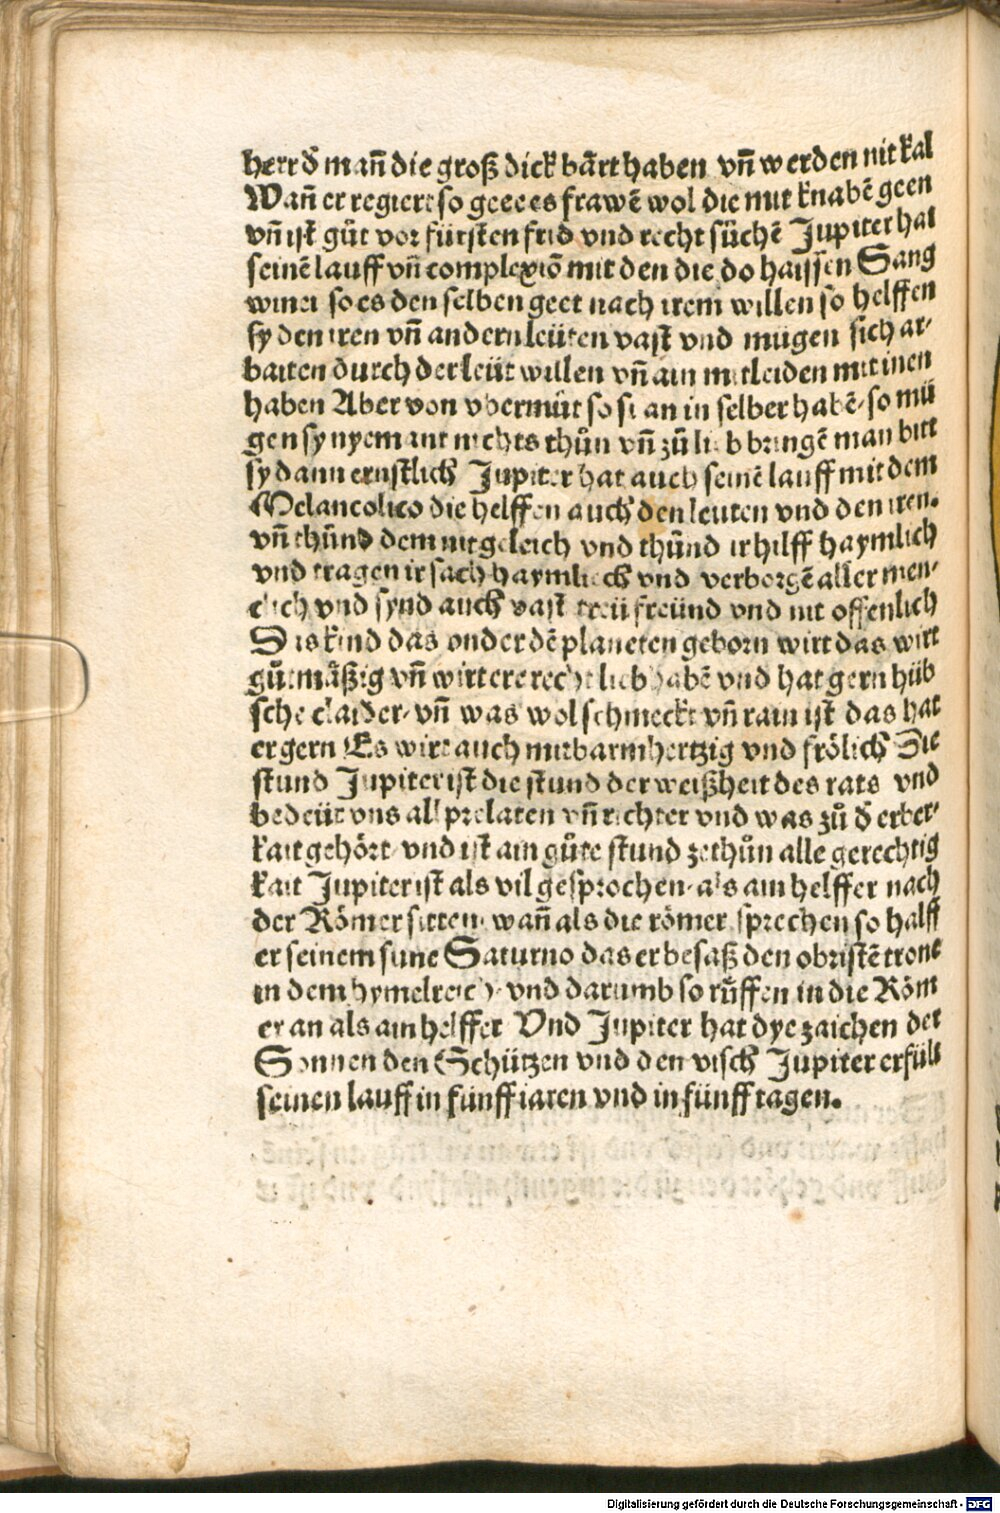 herr d̄ mañ die groß dick bärt haben vñ werden nit kal
Wañ er regiert so geet es frawē wol die mit knabē geen
vñ ist gůt vor fürsten frid vnd recht sůchē Jupiter hat
seinē lauff vñ complexiō mit den die do haissen Sang
winei so es den selben geet nach irem willen so helffen
sy den iren vñ andern leüten vast vnd mugen sich ar⸗
baiten durch der leüt willen vñ ain mitleiden mit inen
haben Aber von vbermůt so si an in selber habē· so mü
gen sy nyemant nichts thůn vñ zů lieb bringē man bitt
sy dann ernstlich Jupiter hat auch seinē lauff mit dem
Melancolico die helffen auch den leuten vnd den iren.
vñ thůnd dem nit geleich vnd thůnd ir hilff haymlich
vnd tragen ir sach haymlich vnd verborgē aller men⸗
clich vnd synd auch vast treü freünd vnd nit offenlich
Dis kind das vnder dē planeten geborn wirt das wirt
gůtmäßig vñ wirt ere recht lieb habē vnd hat gern hüb
sche claider· vñ was wol schmeckt vñ rain ist das hat
er gern Es wirt auch mitbarmhertzig vnd frölich Die
stund Jupiter ist die stund der weißheit des rats vnd
bedeüt vns all prelaten vñ richter vnd was zů d̄ erber⸗
kait gehört vnd ist ain gůte stund zethůn alle gerechtig
kait Jupiter ist als vil gesprochen· als ain helffer nach
der Römer sitten· wañ als die römer sprechen so halff
er seinem sune Saturno das er besaß den obristē trone
in dem hymelreich· vnd darumb so růffen in die Röm
er an als ain helffer Vnd Jupiter hat dye zaichen der
Sonnen den Schützen vnd den visch Jupiter erfült
seinen lauff in fünff iaren vnd in fünff tagen.
Digitalisierung gefördert durch die Deutsche Forschungsgemeinschaft - DFG